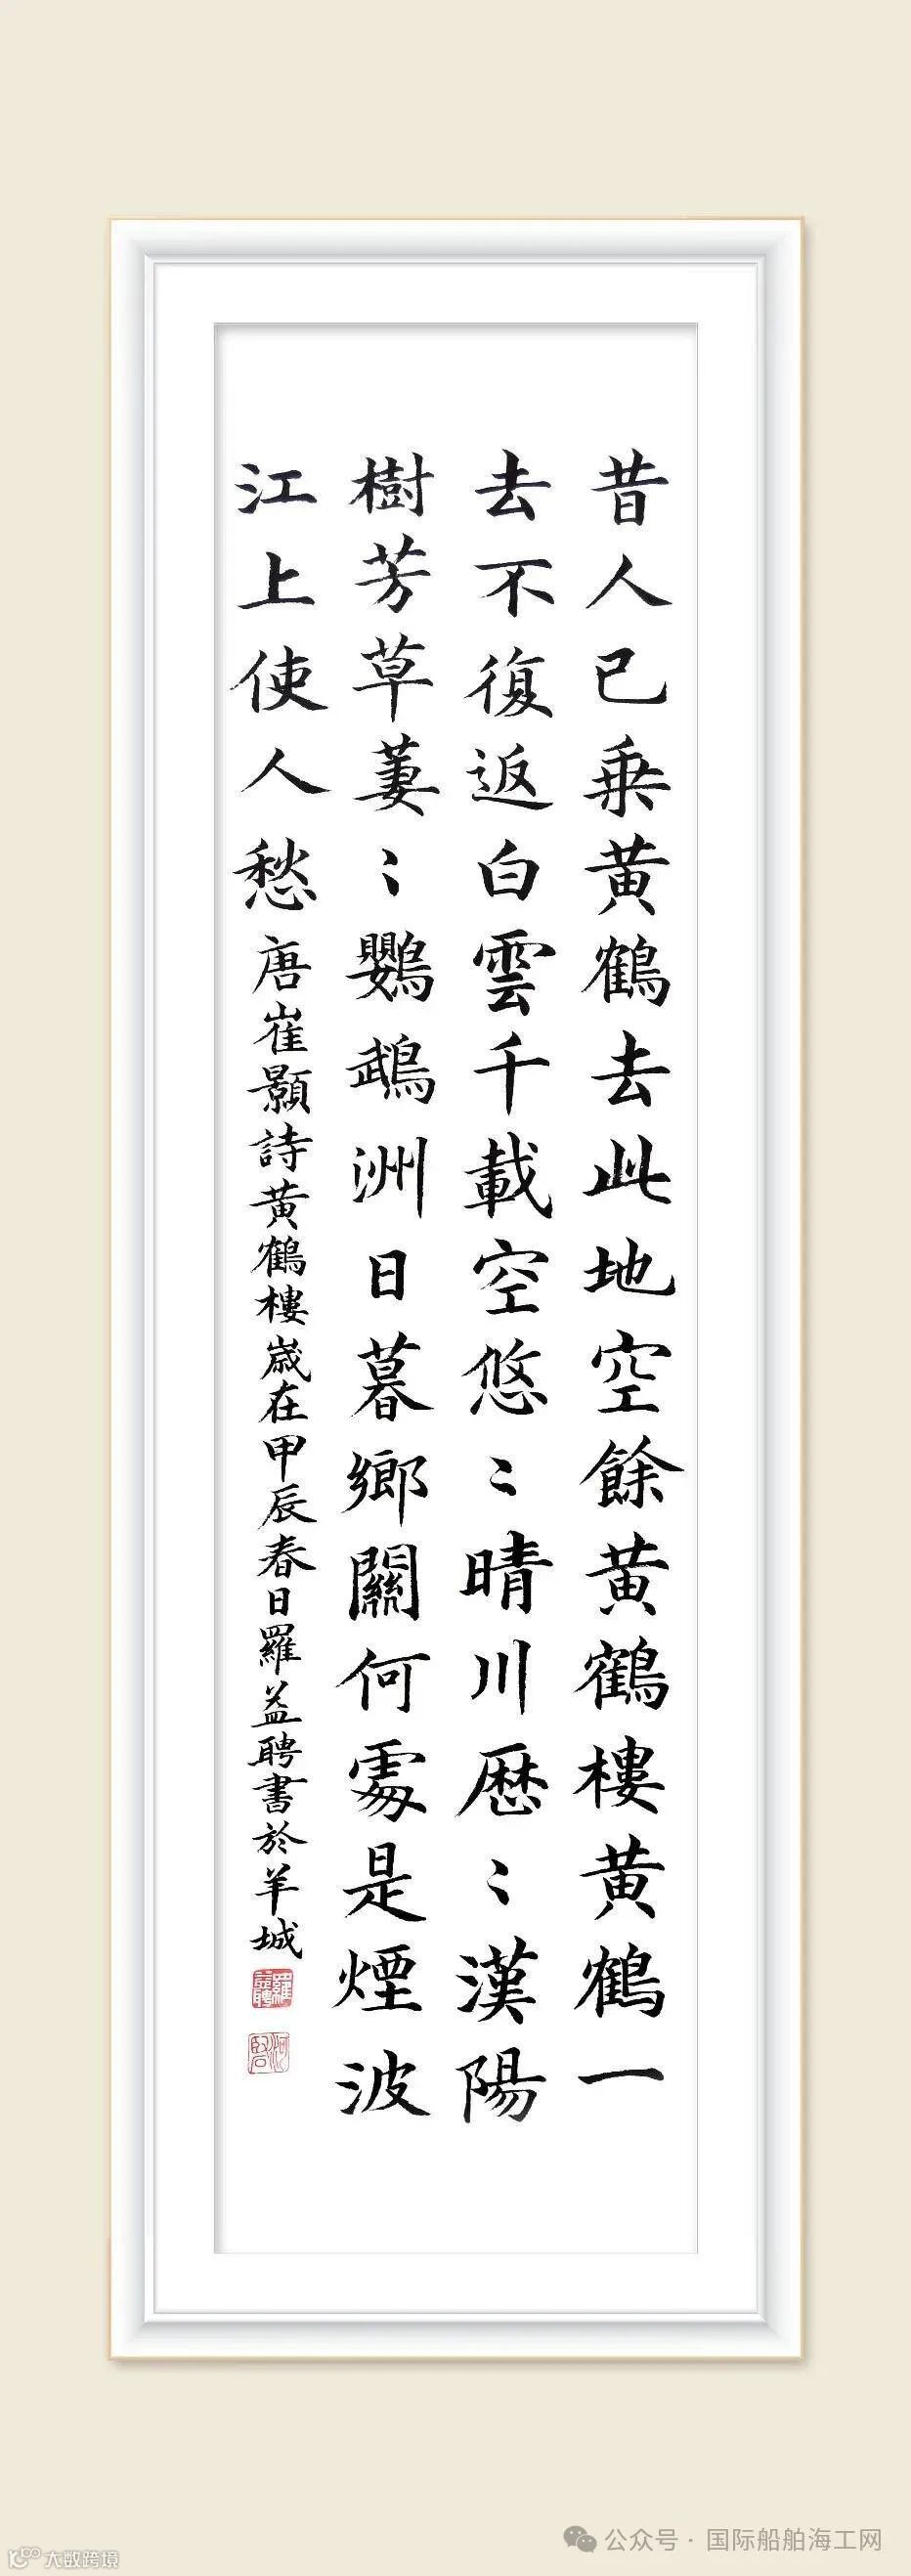 昔人已乗黄鶴去此地空餘黄鶴樓黄鶴一
去不復返白雲千載空悠〻晴川歴〻漢陽
樹芳草萋〻鸚鵡洲日暮鄉關何處是煙波
江上使人愁唐崔顥詩黄鶴樓歲在甲辰春日羅益聘書於羊城
公众号·国际船舶海工网
大数跨境